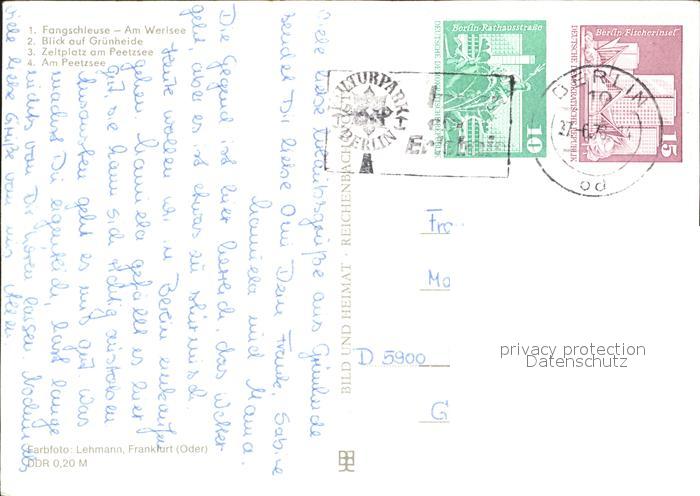 1. Fangschleuse – Am Werlsee
2. Blick auf Grünheide
3. Zeltplatz am Peetzsee
4. Am Peetzsee
Viele liebe Urlaubsgrüße aus Grünheide
sendet Dir liebe Omi Dein Frank, Sabine
Manuela und Mama.
Die Gegend ist hier herrlich, das Wetter
geht, aber es ist etwas zu stürmisch.
Heute wollen wir in Berlin einkaufen
gehen. Manuela gefällt es hier
gut, sie kann sich richtig austoben
Ansonsten geht es uns gut. Was
machst Du eigentlich, hast lange
nichts von Dir hören lassen. Nochmals
viele liebe Grüße von uns Allen.
Farbfoto: Lehmann, Frankfurt (Oder)
DDR 0,20 M
BILD UND HEIMAT · REICHENBACH
KULTURPARK
BERLIN
Berlin-Rathausstraße
DEUTSCHE DEMOKRATISCHE REPUBLIK
10
Berlin-Fischerinsel
DEUTSCHE DEMOKRATISCHE REPUBLIK
15
BERLIN
10
od
Fra
Mo
D 5900
G
privacy protection
Datenschutz